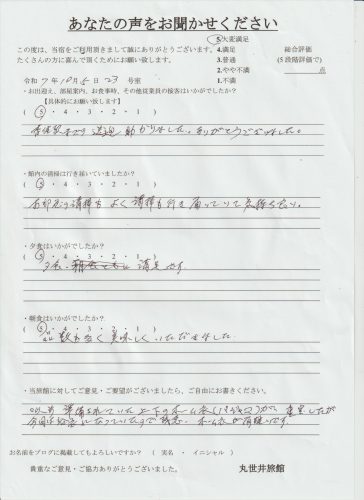 あなたの声をお聞かせください
この度は、当宿をご利用頂きまして誠にありがとうございます。
たくさんの方に喜んで頂ける宿にするためにお願い致します。
5.大変満足
4.満足
3.普通
2.やや不満
1.不満
総合評価
(5段階評価で)
点
令和 7年 10月 5日 23号室
・お出迎え、部屋案内、お食事時、その他従業員の接客はいかがでしたか?
【具体的にお願い致します】
( 5 ・ 4 ・ 3 ・ 2 ・ 1 )
助かりました。ありがとうございました。
・館内の清掃は行き届いていましたか?
( 5 ・ 4 ・ 3 ・ 2 ・ 1 )
よく清掃も行き届いていて気持ち
・夕食はいかがでしたか?
( 5 ・ 4 ・ 3 ・ 2 ・ 1 )
夕食 満足です
・朝食はいかがでしたか?
( 5 ・ 4 ・ 3 ・ 2 ・ 1 )
品数も多く美味しくいただきました
・当旅館に対してご意見・ご要望がございましたら、ご自由にお書きください。
準備されていた上下の
今回は
お名前をブログに掲載してもよろしいですか? ( 実名 ・ イニシャル )
貴重なご意見・ご協力ありがとうございました。
丸世井旅館